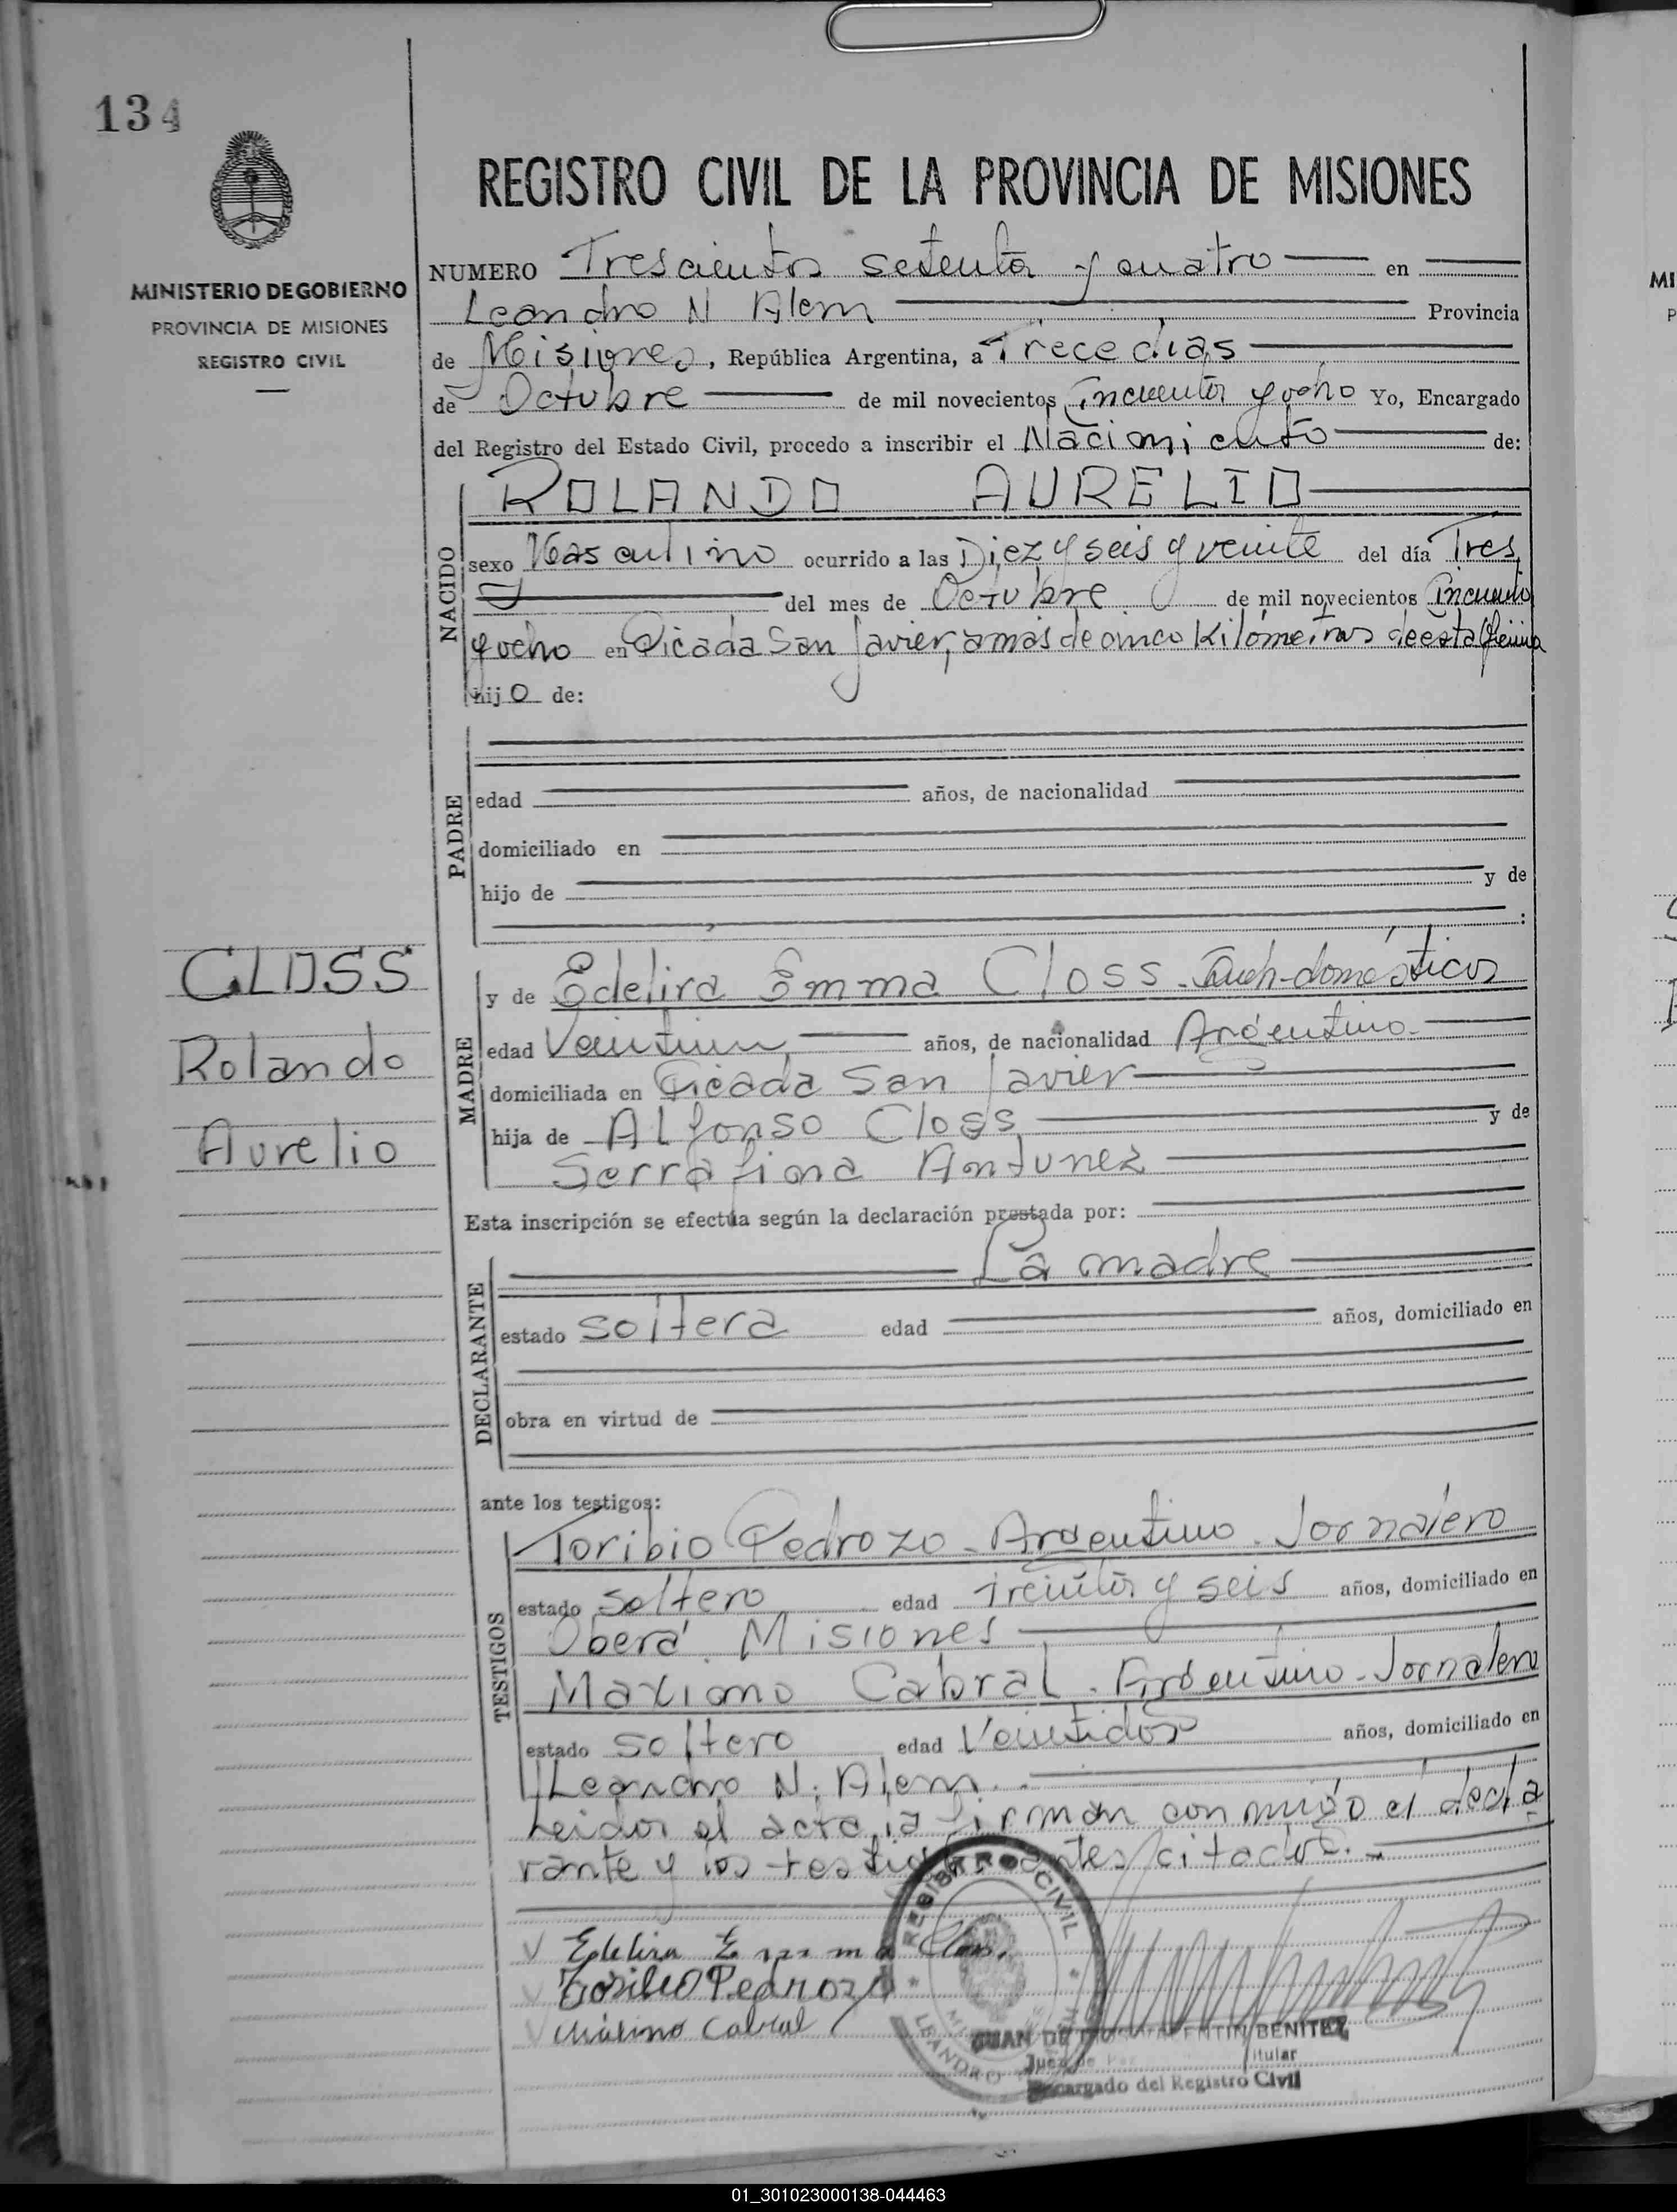 134
MINISTERIO DE GOBIERNO
PROVINCIA DE MISIONES
REGISTRO CIVIL
REGISTRO CIVIL DE LA PROVINCIA DE MISIONES
NUMERO Trescientos setenta y cuatro en
Leandro N Alem Provincia
de Misiones, República Argentina, a Trece días
de Octubre de mil novecientos cincuenta y ocho Yo, Encargado
del Registro del Estado Civil, procedo a inscribir el Nacimiento de:
ROLANDO AURELIO
NACIDO
sexo Masculino ocurrido a las Diez y seis y veinte del día Tres
del mes de Octubre de mil novecientos cincuenta
y ocho en Picada San Javier, a más de cinco Kilómetros de esta Oficina
hijo de:
PADRE
edad años, de nacionalidad
domiciliado en
hijo de y de
:
CLOSS
Rolando
Aurelio
MADRE
y de Edelira Emma Closs. Queh-domésticos
edad Veintiun años, de nacionalidad Argentino.
domiciliada en Picada San Javier
hija de Alfonso Closs y de
Serrafina Antunez
Esta inscripción se efectúa según la declaración prestada por:
La madre
DECLARANTE
estado soltera edad años, domiciliado en
obra en virtud de
ante los testigos:
TESTIGOS
Toribio Pedrozo - Argentino. Jornalero
estado soltero edad Treinta y seis años, domiciliado en
Oberá. Misiones
Maximo Cabral. Argentino - Jornalero
estado soltero edad Veintidos años, domiciliado en
Leandro N. Alem.
Leidos el acta, la firman conmigo el decla
rante y los testigos antes citados. -
Edelira Emma Closs.
Toribio Pedrozo
Máximo Cabral
REGISTRO CIVIL
LEANDRO
JUAN DE BENITEZ
Juez de Paz Titular
Encargado del Registro Civil
MI
P
01_301023000138-044463